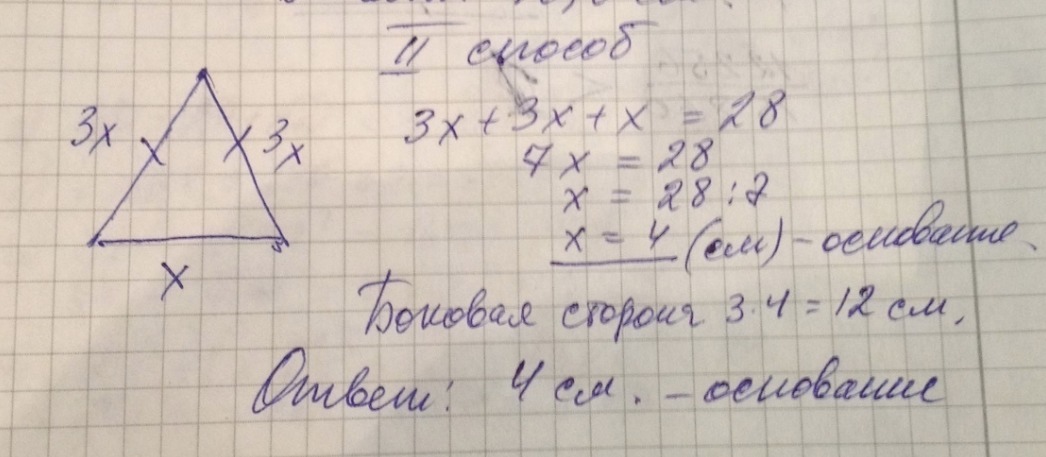 II способ
3x 3x
3x + 3x + x = 28
7x = 28
x = 28 : 7
x = 4 (см) - основание.
x
Боковая сторона 3·4 = 12 см.
Ответ: 4 см. - основание